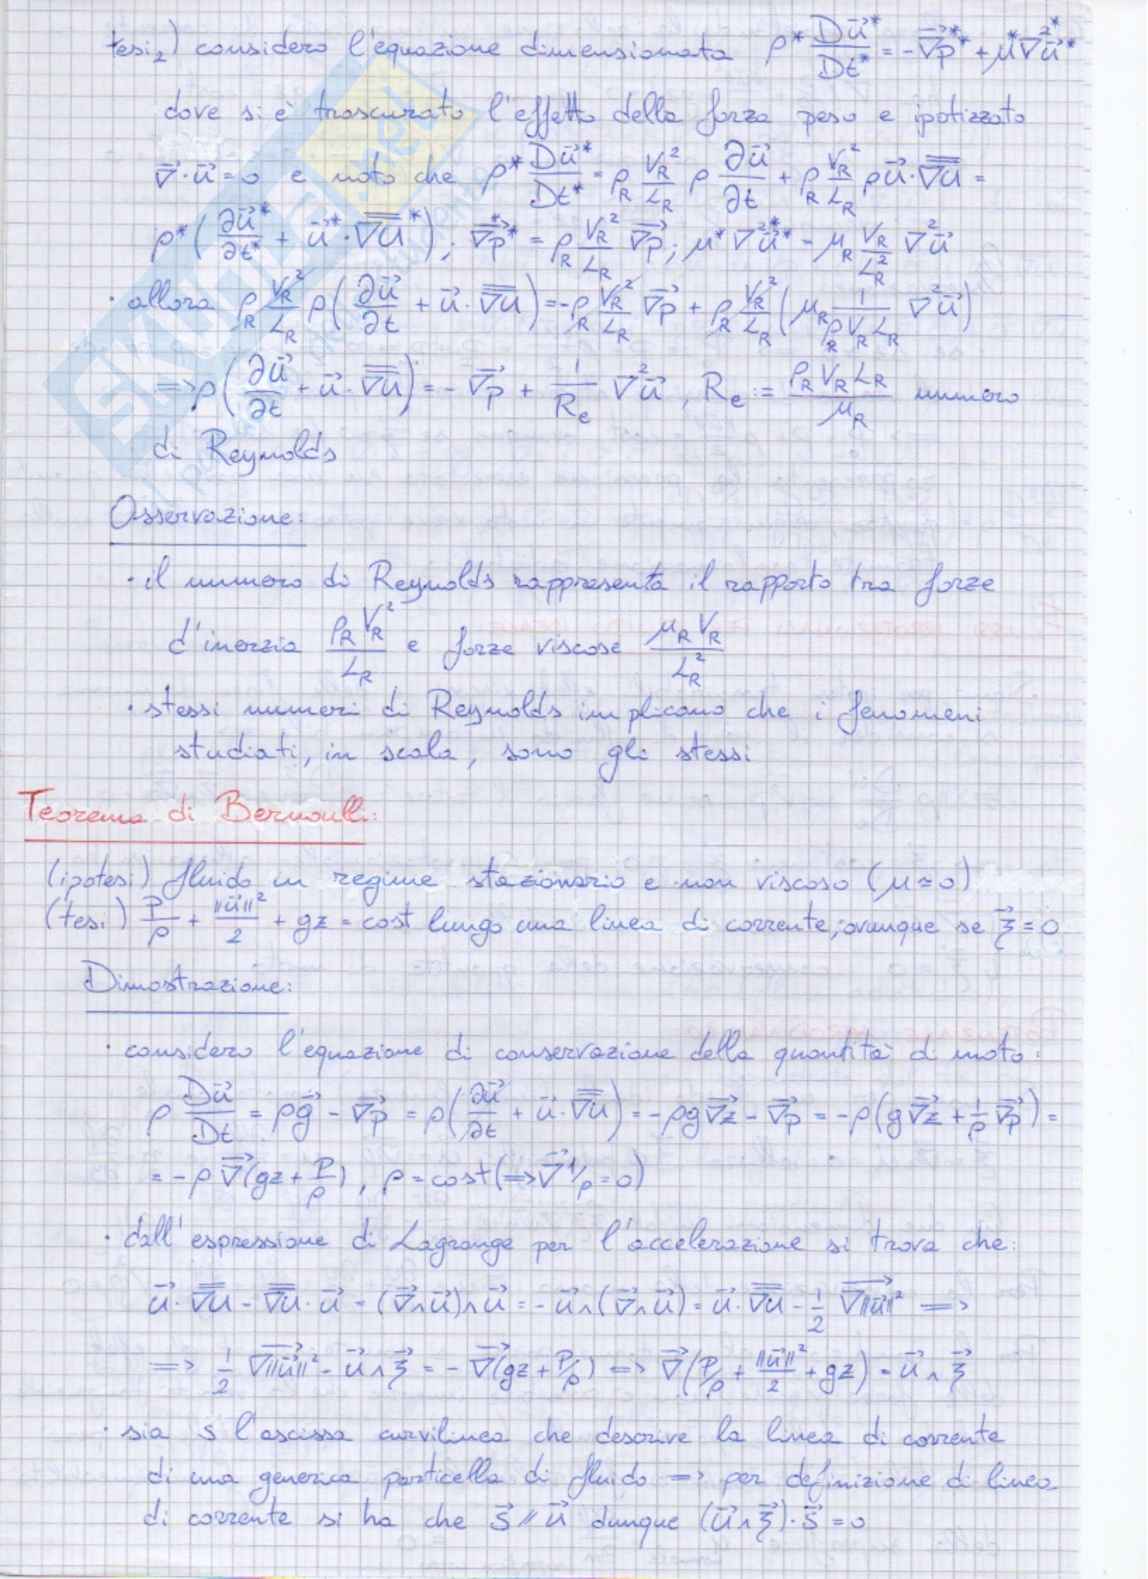 tesi₂) considero l'equazione dimensionata ρ* Du⃗*/Dt* = -∇⃗p* + μ*∇²u⃗*
dove si è trascurato l'effetto della forza peso e ipotizzato
∇⃗·u⃗=0 è noto che ρ* Du⃗*/Dt* = ρ_R V_R²/L_R ρ ∂u⃗/∂t + ρ_R V_R²/L_R ρu⃗·∇u =
ρ*(∂u⃗*/∂t* + u⃗*·∇u*) ; ∇⃗p* = ρ_R V_R²/L_R ∇⃗p ; μ*∇²u⃗* = μ_R V_R/L_R² ∇²u⃗
· allora ρ_R V_R²/L_R ρ(∂u⃗/∂t + u⃗·∇u) = -ρ_R V_R²/L_R ∇⃗p + ρ_R V_R²/L_R (μ_R 1/(ρ_R V_R L_R) ∇²u⃗)
=> ρ(∂u⃗/∂t + u⃗·∇u) = -∇⃗p + 1/Re ∇²u⃗ , Re := ρ_R V_R L_R/μ_R numero
di Reynolds
Osservazione:
· il numero di Reynolds rappresenta il rapporto tra forze
d'inerzia ρ_R V_R²/L_R e forze viscose μ_R V_R/L_R²
· stessi numeri di Reynolds implicano che i fenomeni
studiati, in scala, sono gli stessi
Teorema di Bernoulli:
(ipotesi) fluido in regime stazionario e non viscoso (μ≃0)
(tesi) P/ρ + ||u⃗||²/2 + gz = cost lungo una linea di corrente, ovunque se ξ⃗=0
Dimostrazione:
· considero l'equazione di conservazione della quantità di moto:
ρ Du⃗/Dt = ρg⃗ - ∇⃗p = ρ(∂u⃗/∂t + u⃗·∇u) = -ρg∇⃗z - ∇⃗p = -ρ(g∇⃗z + 1/ρ ∇⃗p) =
= -ρ∇⃗(gz + P/ρ) , ρ = cost (=> ∇⃗1/ρ = 0)
· dall'espressione di Lagrange per l'accelerazione si trova che:
u⃗·∇u - ∇u·u⃗ = (∇⃗∧u⃗)∧u⃗ = -u⃗∧(∇⃗∧u⃗) = u⃗·∇u - 1/2 ∇||u⃗||² =>
=> 1/2 ∇||u⃗||² - u⃗∧ξ⃗ = -∇⃗(gz + P/ρ) => ∇⃗(P/ρ + ||u⃗||²/2 + gz) = u⃗∧ξ⃗
· sia s l'ascissa curvilinea che descrive la linea di corrente
di una generica particella di fluido => per definizione di linea
di corrente si ha che s⃗ // u⃗ dunque (u⃗∧ξ⃗)·s⃗ = 0